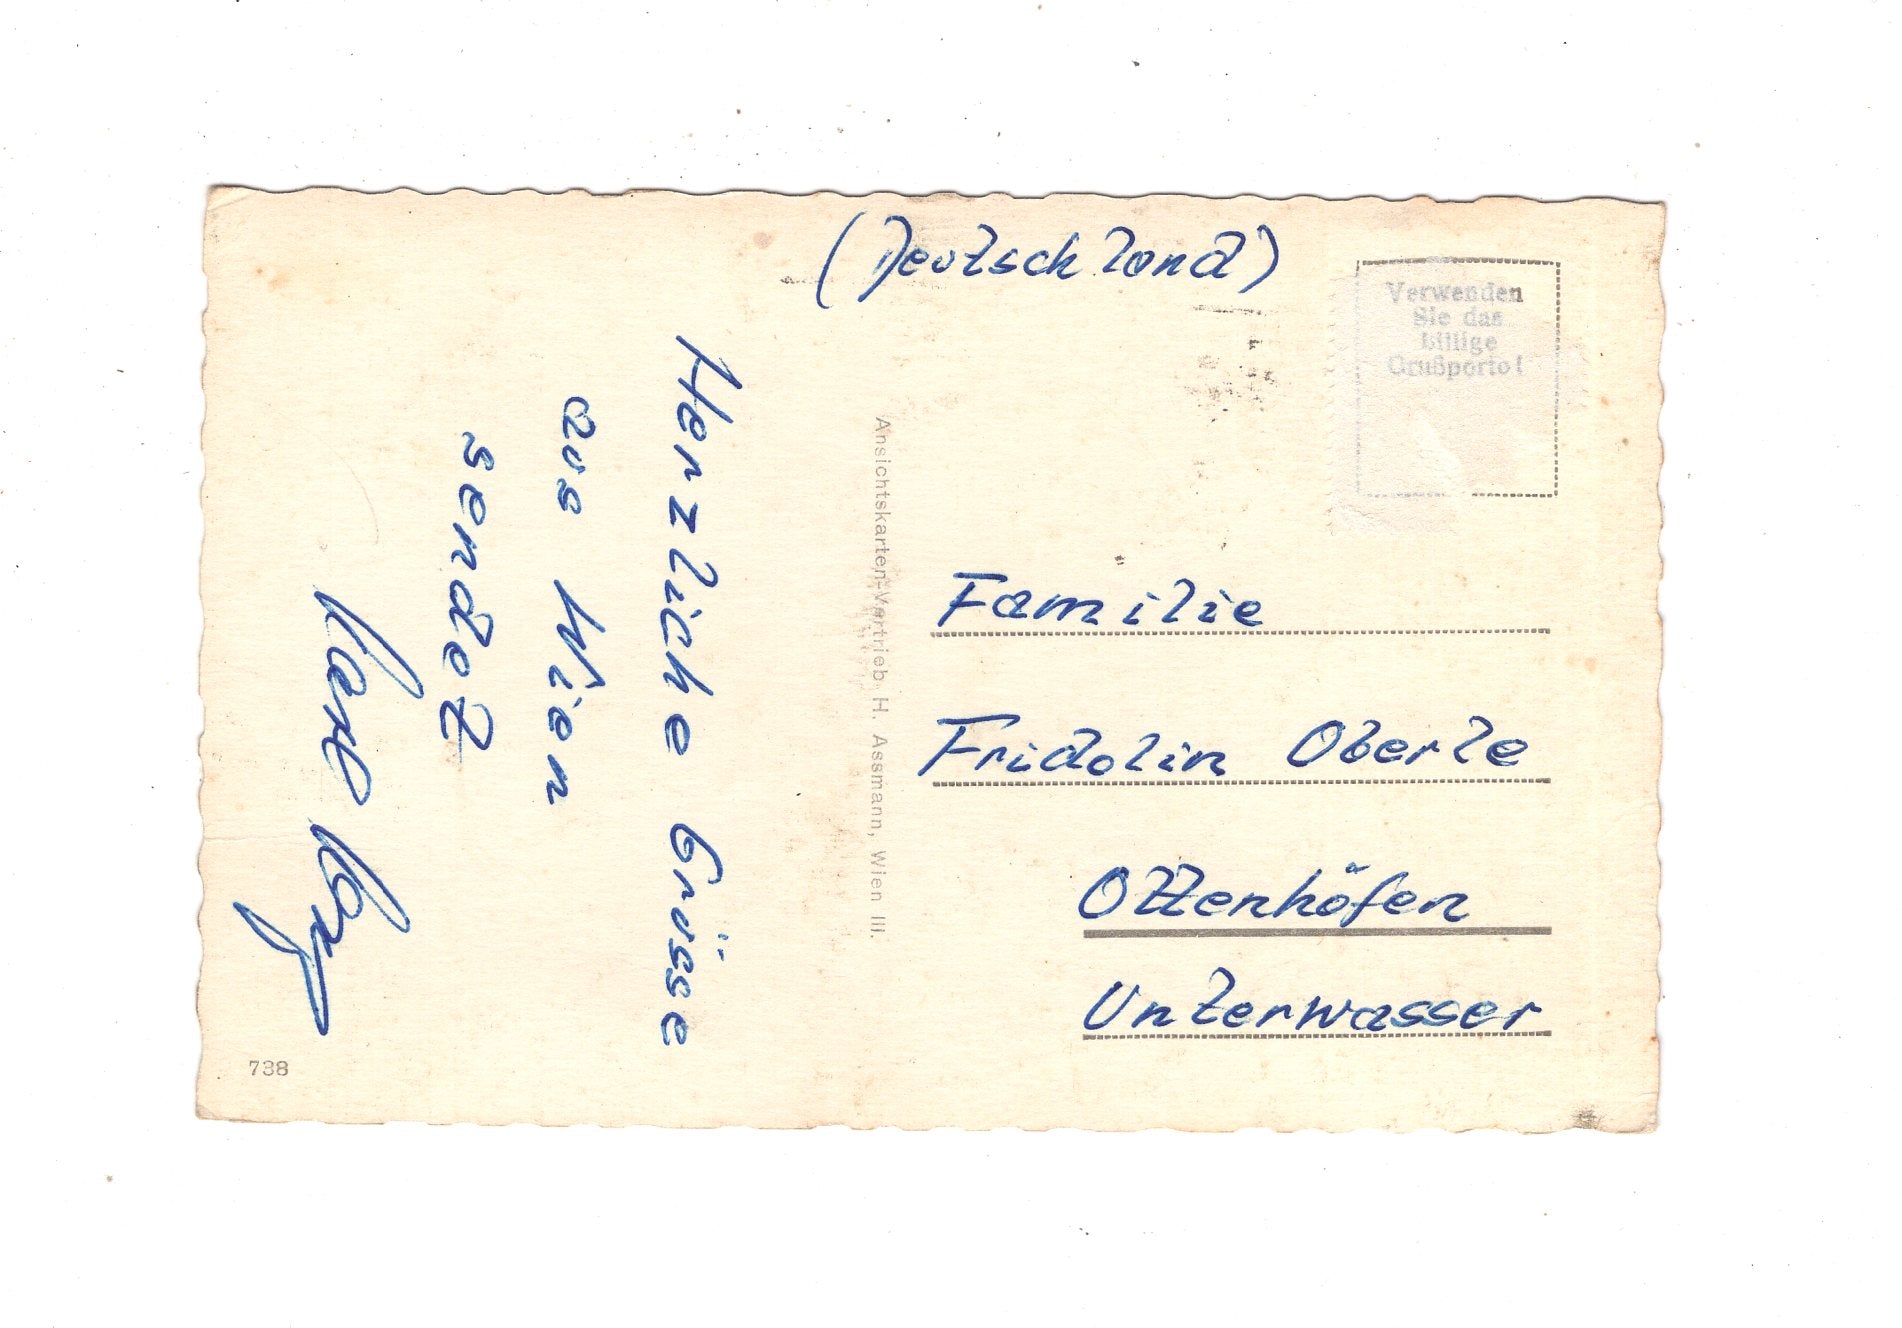 (Deutschland)
Verwenden
Sie das
billige
Grußporto!
Herzliche Grüsse
aus Wien
sendet
Karl
Ansichtskarten-Vertrieb H. Assmann, Wien III.
Familie
Fridolin Oberle
Ottenhöfen
Unterwasser
738